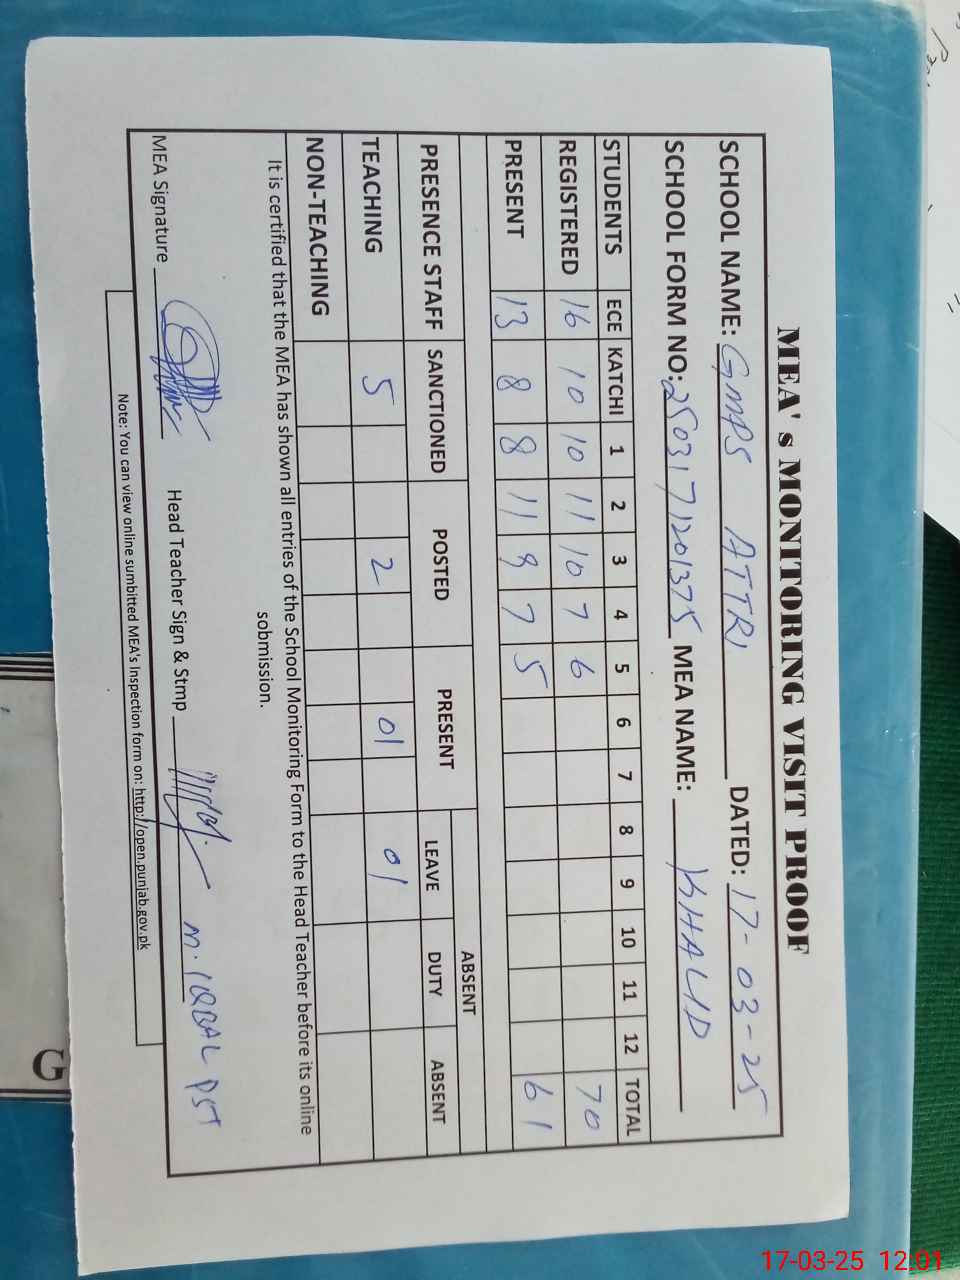 MEA' s MONITORING VISIT PROOF
SCHOOL NAME: GMPS ATTRI DATED: 17-03-25
SCHOOL FORM NO: 25031 71201375 MEA NAME: KHALID
STUDENTS ECE KATCHI 1 2 3 4 5 6 7 8 9 10 11 12 TOTAL
REGISTERED 16 10 10 11 10 7 6 70
PRESENT 13 8 8 11 9 7 5 61
PRESENCE STAFF SANCTIONED POSTED PRESENT ABSENT
LEAVE DUTY ABSENT
TEACHING 5 2 01 01
NON-TEACHING
It is certified that the MEA has shown all entries of the School Monitoring Form to the Head Teacher before its online
sobmission.
MEA Signature Head Teacher Sign & Stmp M. IQBAL PST
Note: You can view online sumbitted MEA's Inspection form on: http://open.punjab.gov.pk
G
17-03-25 12:01